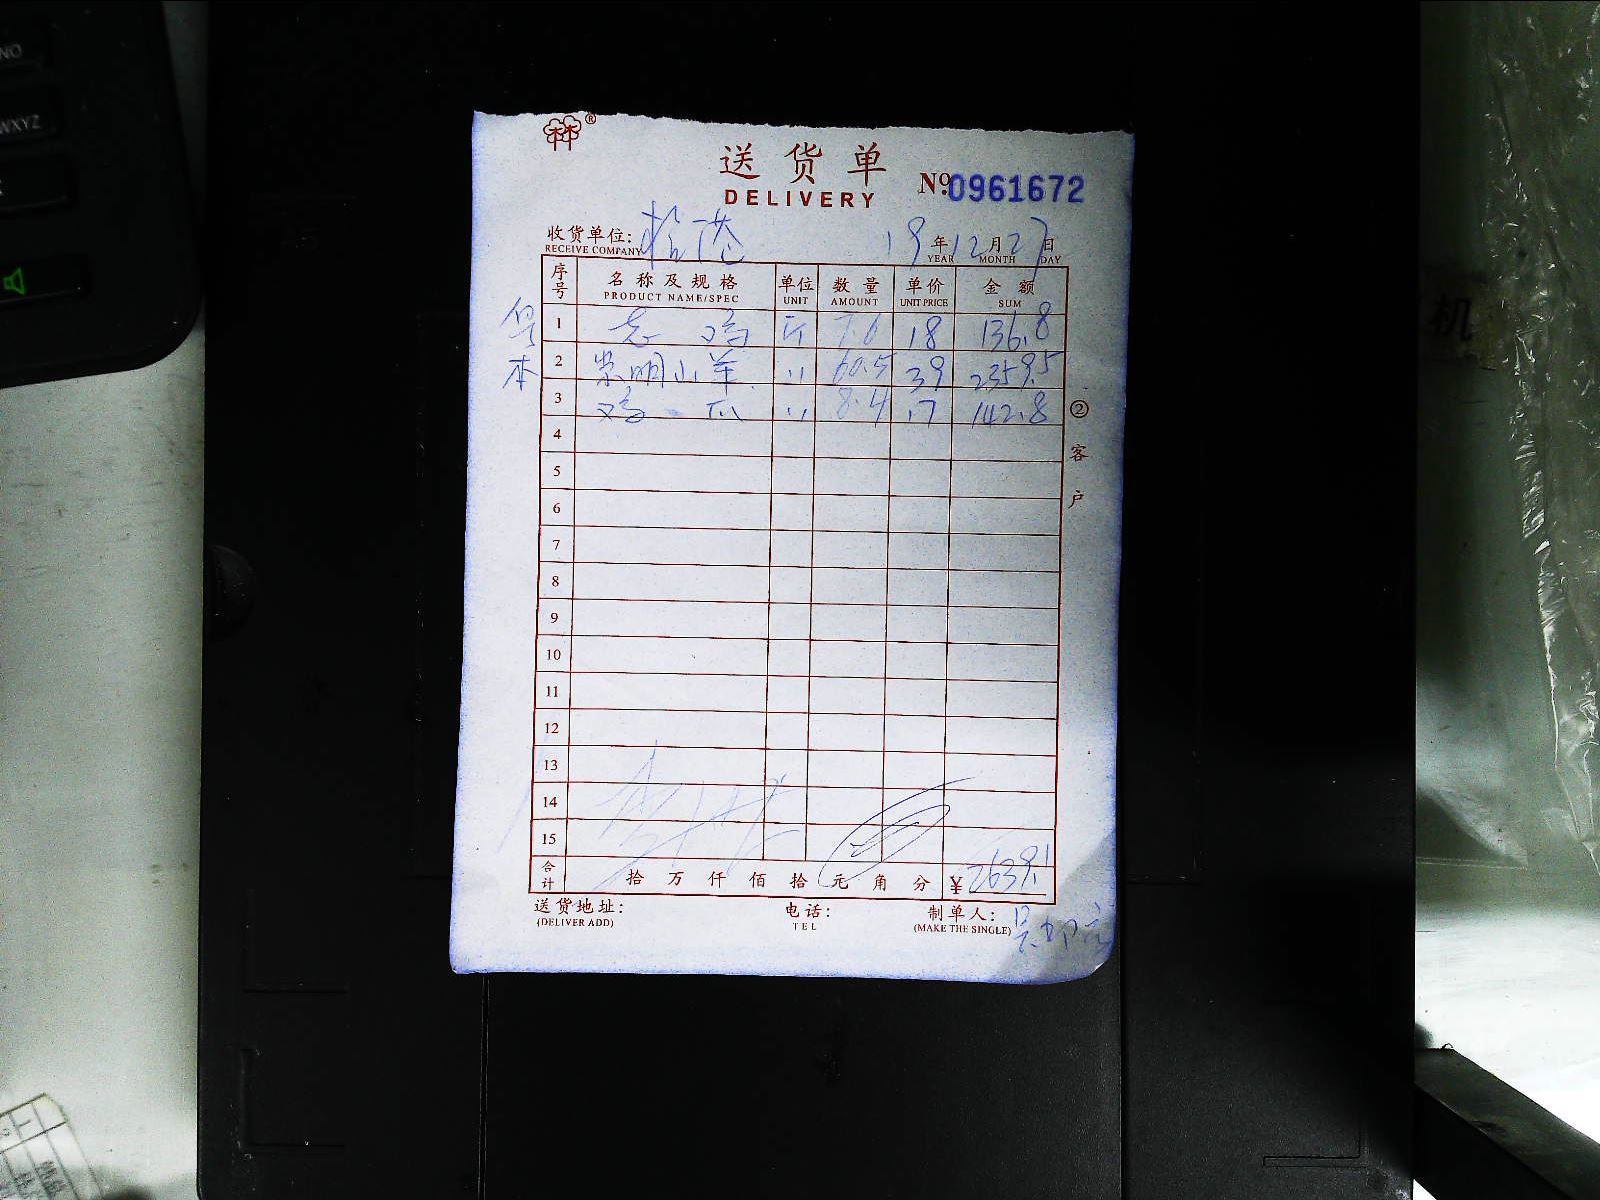 NO
WXYZ
机
送货单
DELIVERY
No 0961672
收货单位:
RECEIVE COMPANY
19年12月27日
YEAR MONTH DAY
序号 名称及规格 单位 数量 单价 金额
PRODUCT NAME/SPEC UNIT AMOUNT UNIT PRICE SUM
1 老鸡 斤 7.6 18 136.8
本 2 崇明山羊 〃 60.5 39 2359.5
3 鸡爪 〃 8.4 17 142.8
4
5
6
7
8
9
10
11
12
13
14
15
②客户
合计 拾万仟佰拾元角分 ¥2639.1
送货地址: 电话: 制单人:
(DELIVER ADD) TEL (MAKE THE SINGLE)